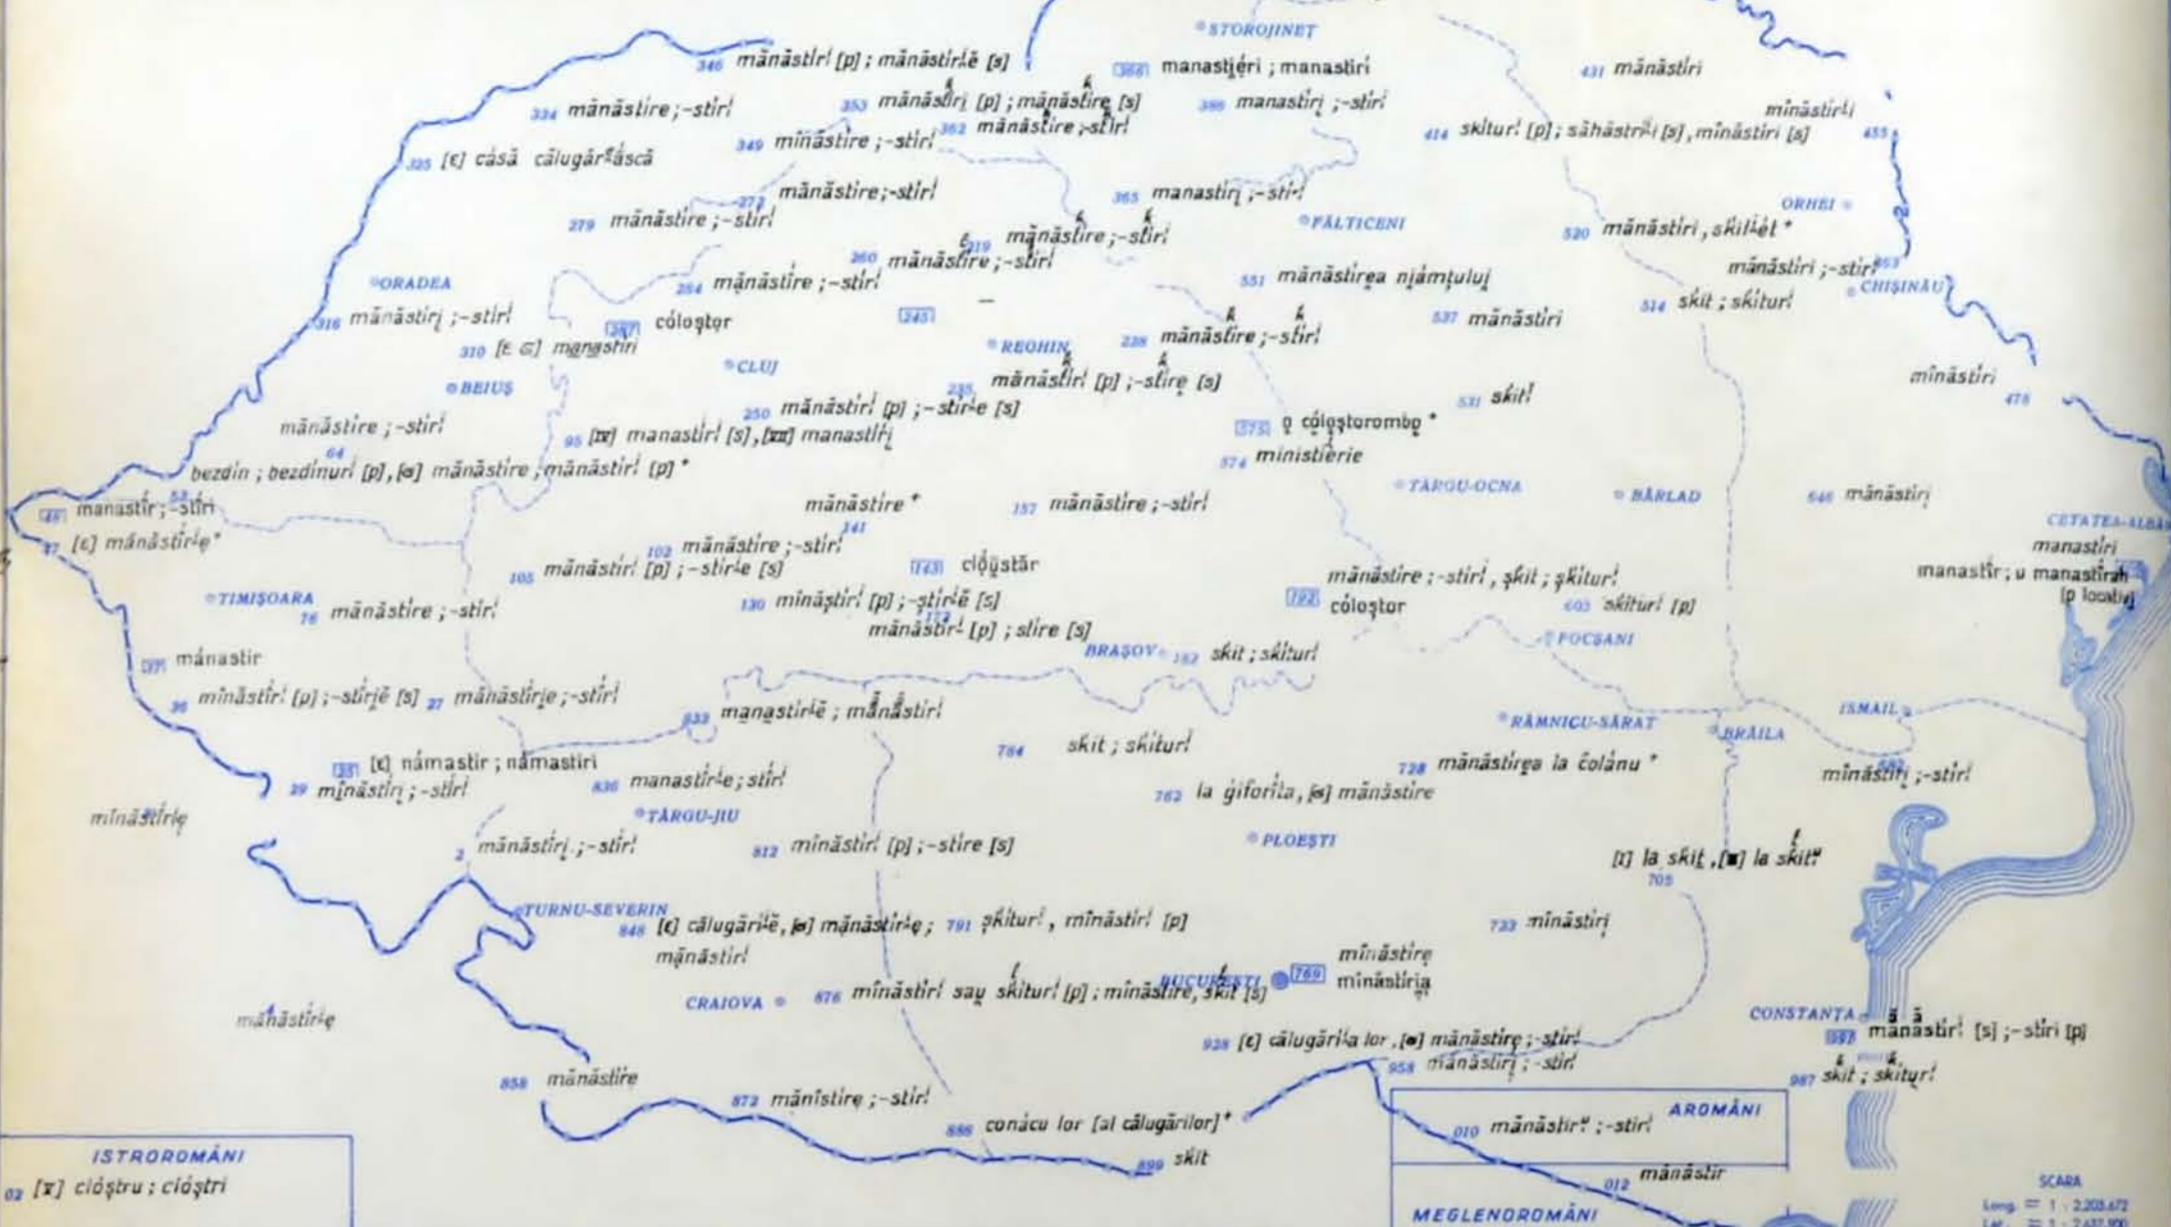 STOROJINEȚ
346 mănăstirĭ [p] ; mănăstirᶤĕ [s]
366 manastiéri ; manastiri
431 mănăstiri
334 mănăstire ; -stirĭ
353 mănăstiri [p] ; mănăstire [s]
386 manastiri ; -stirĭ
mînăstirᶤi
362 mănăstire ; -stirĭ
414 skiturĭ [p] ; săhăstrᶤi [s], mînăstiri [s]
455
349 mînăstire ; -stirĭ
325 [ε] cásă călugărĕáscă
272 mănăstire ; -stirĭ
365 manastirį ; -stirĭ
ORHEI
279 mănăstire ; -stirĭ
FĂLTICENI
520 mănăstiri, skitᶤét *
219 mănăstire ; -stirĭ
260 mănăstire ; -stirĭ
mănăstiri ; -stirĭ
ORADEA
284 mănăstire ; -stirĭ
551 mănăstirea niámțuluĭ
CHIȘINĂU
514 skit ; skiturĭ
316 mănăstirį ; -stirĭ
cóloștor
245 —
537 mănăstiri
228 mănăstire ; -stirĭ
310 manastiri
REGHIN
CLUJ
BEIUȘ
235 mănăstirĭ [p] ; -stire [s]
mînăstiri
478
531 skitĭ
250 mănăstirĭ [p] ; -stirᶤe [s]
mănăstire ; -stirĭ
64
95 [IV] manastirĭ [s], [VII] manastiri
575 o cóloștorombo *
574 ministiérie
bezdin ; bezdinurĭ [p], mănăstire, mănăstirĭ [p] *
53
TÂRGU-OCNA
BÂRLAD
646 mănăstiri
manastir ; -stiri
mănăstire *
141
157 mănăstire ; -stirĭ
CETATEA-ALBĂ
47 [ε] mănăstirᶤe *
102 mănăstire ; -stirĭ
manastiri
105 mănăstirĭ [p] ; -stirᶤe [s]
143 clóuștăr
manastir ; u manastirah
mănăstire ; -stirĭ, skit ; skiturĭ
[p locativ]
TIMIȘOARA
76 mănăstire ; -stirĭ
130 mînăștirĭ [p] ; -știrᶤĕ [s]
792 cóloștor
605 skiturĭ [p]
mănăstirᶤ [p] ; stire [s]
FOCȘANI
BRAȘOV
182 skit ; skiturĭ
37 mánastir
36 mînăstirĭ [p] ; -stiriĕ [s]
27 mănăstirie ; -stirĭ
833 manastirᶤĕ ; mănăstirĭ
RÂMNICU-SĂRAT
ISMAIL
BRĂILA
784 skit ; skiturĭ
[ε] námastir ; námastiri
728 mănăstirea la ĉolánu *
mînăstiri ; -stirĭ
29 mînăstiri ; -stirĭ
836 manastirᶤe ; stirĭ
762 la ĝiforita, mănăstire
mînăstirie
TÂRGU-JIU
PLOEȘTI
2 mănăstiri ; -stirĭ
812 mînăstirĭ [p] ; -stire [s]
[I] la skit, la skitᵘ
705
TURNU-SEVERIN
848 [ε] călugărᶤĕ, mănăstirᶤe ;
mănăstirĭ
791 skiturĭ, mînăstirĭ [p]
723 mînăstiri
mînăstire
BUCUREȘTI 769 mînăstiria
CRAIOVA
876 mînăstirĭ sau skiturĭ [p] ; mînăstire, skit [s]
mănăstirᶤe
CONSTANȚA
mănăstirĭ [s] ; -stiri [p]
928 [ε] călugărᶤia lor, mănăstire ; -stirĭ
958 mănăstiri ; -stirĭ
987 skit ; skiturĭ
858 mănăstire
872 mănîstire ; -stirĭ
886 conácu lor [al călugărilor] *
AROMÂNI
010 mănăstirᵘ ; -stirĭ
899 skit
012 mănăstir
ISTROROMÂNI
02 [V] clóștru ; clóștri
MEGLENOROMÂNI
SCARA
Long. = 1 : 2.205.672